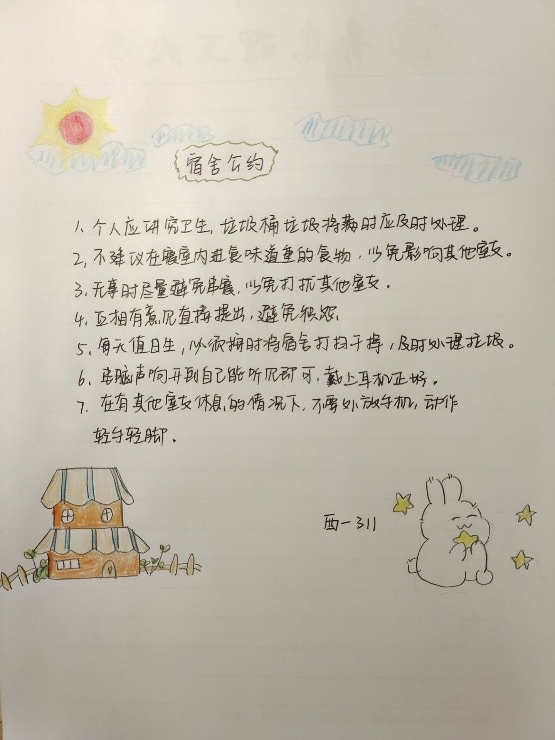 宿舍公约
1、个人应讲究卫生，垃圾桶垃圾将满时应及时处理。
2、不建议在寝室内进食味道重的食物，以免影响其他室友。
3、无事时尽量避免串寝，以免打扰其他室友。
4、互相有意见直接提出，避免积怨
5、每天值日生，必须按时将宿舍打扫干净，及时处理垃圾。
6、电脑声响开到自己能听见即可，戴上耳机正好。
7、在有其他室友休息的情况下，不要外放手机，动作
轻手轻脚。
西-311